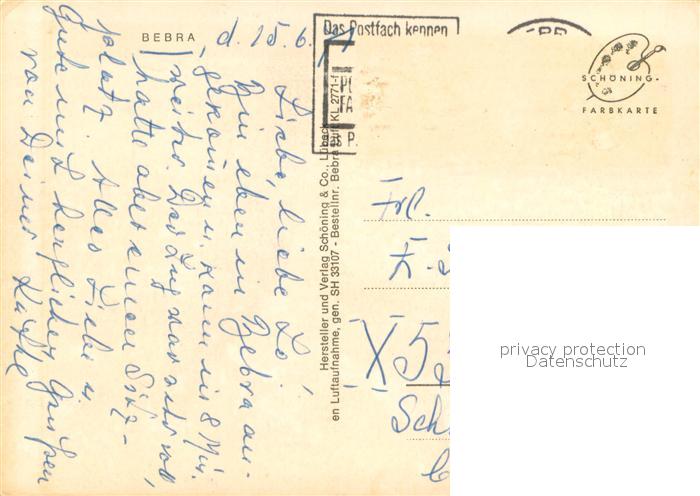 BEBRA
d. 15. 6. 71
Liebe, liebe Lo!
Bin eben in Bebra an-
gekommen u. kann in 8 Min.
weiter. Der Zug war sehr voll,
hatte aber einen Sitz-
platz. Alles Liebe u.
Gute mit herzlichen Grüßen
von Deiner Käthe
Das Postfach kennen
Hersteller und Verlag Schöning & Co., Lübeck
en Luftaufnahme, gen. SH 33107 - Bestellnr. Bebra Luft KL 2771-1
SCHÖNING-
FARBKARTE
Frl.
X 5
Sch
privacy protection
Datenschutz